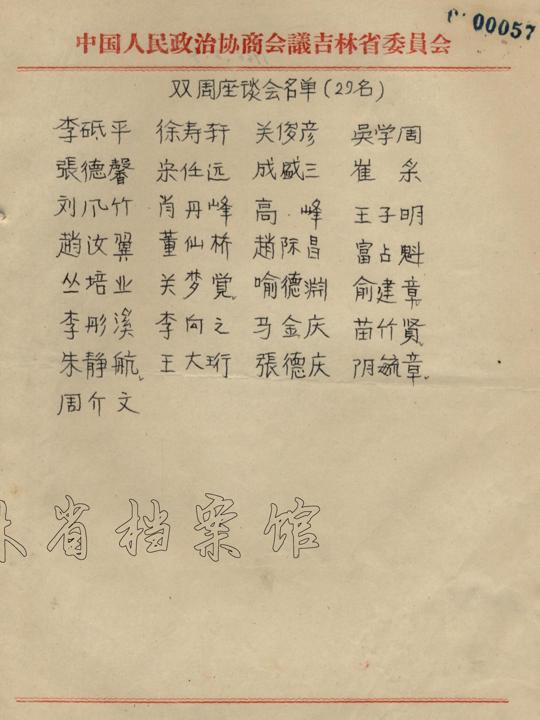 00057
中国人民政治协商会議吉林省委員会
双周座谈会名单(29名)
李砥平 徐寿轩 关俊彦 吳学周
張德馨 宋任远 成盛三 崔 采
刘爪竹 肖丹峰 高 峰 王子明
趙汝翼 董仙桥 趙际昌 富占魁
丛培业 关梦觉 喻德渊 俞建章
李彤溪 李向之 马金庆 苗竹贤
朱静航 王大珩 張德庆 阴毓章
周介文
林省档案馆